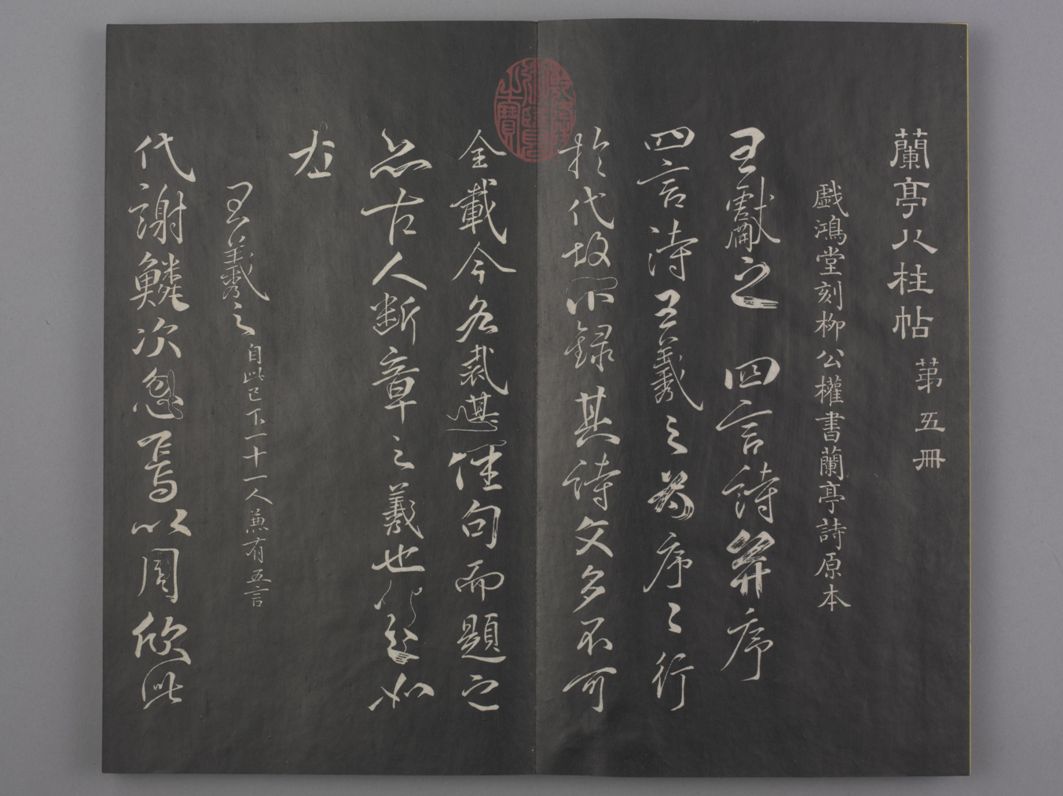 蘭亭八柱帖 第五冊
戲鴻堂刻柳公權書蘭亭詩原本
王獻之 四言詩并序
四言詩王羲之為序序行
於代故不錄其詩文多不可
全載今各裁其佳句而題之
亦古人斷章之義也 如
左
王羲之 自此已下一十一人兼有五言
代謝鱗次忽焉以周欣此